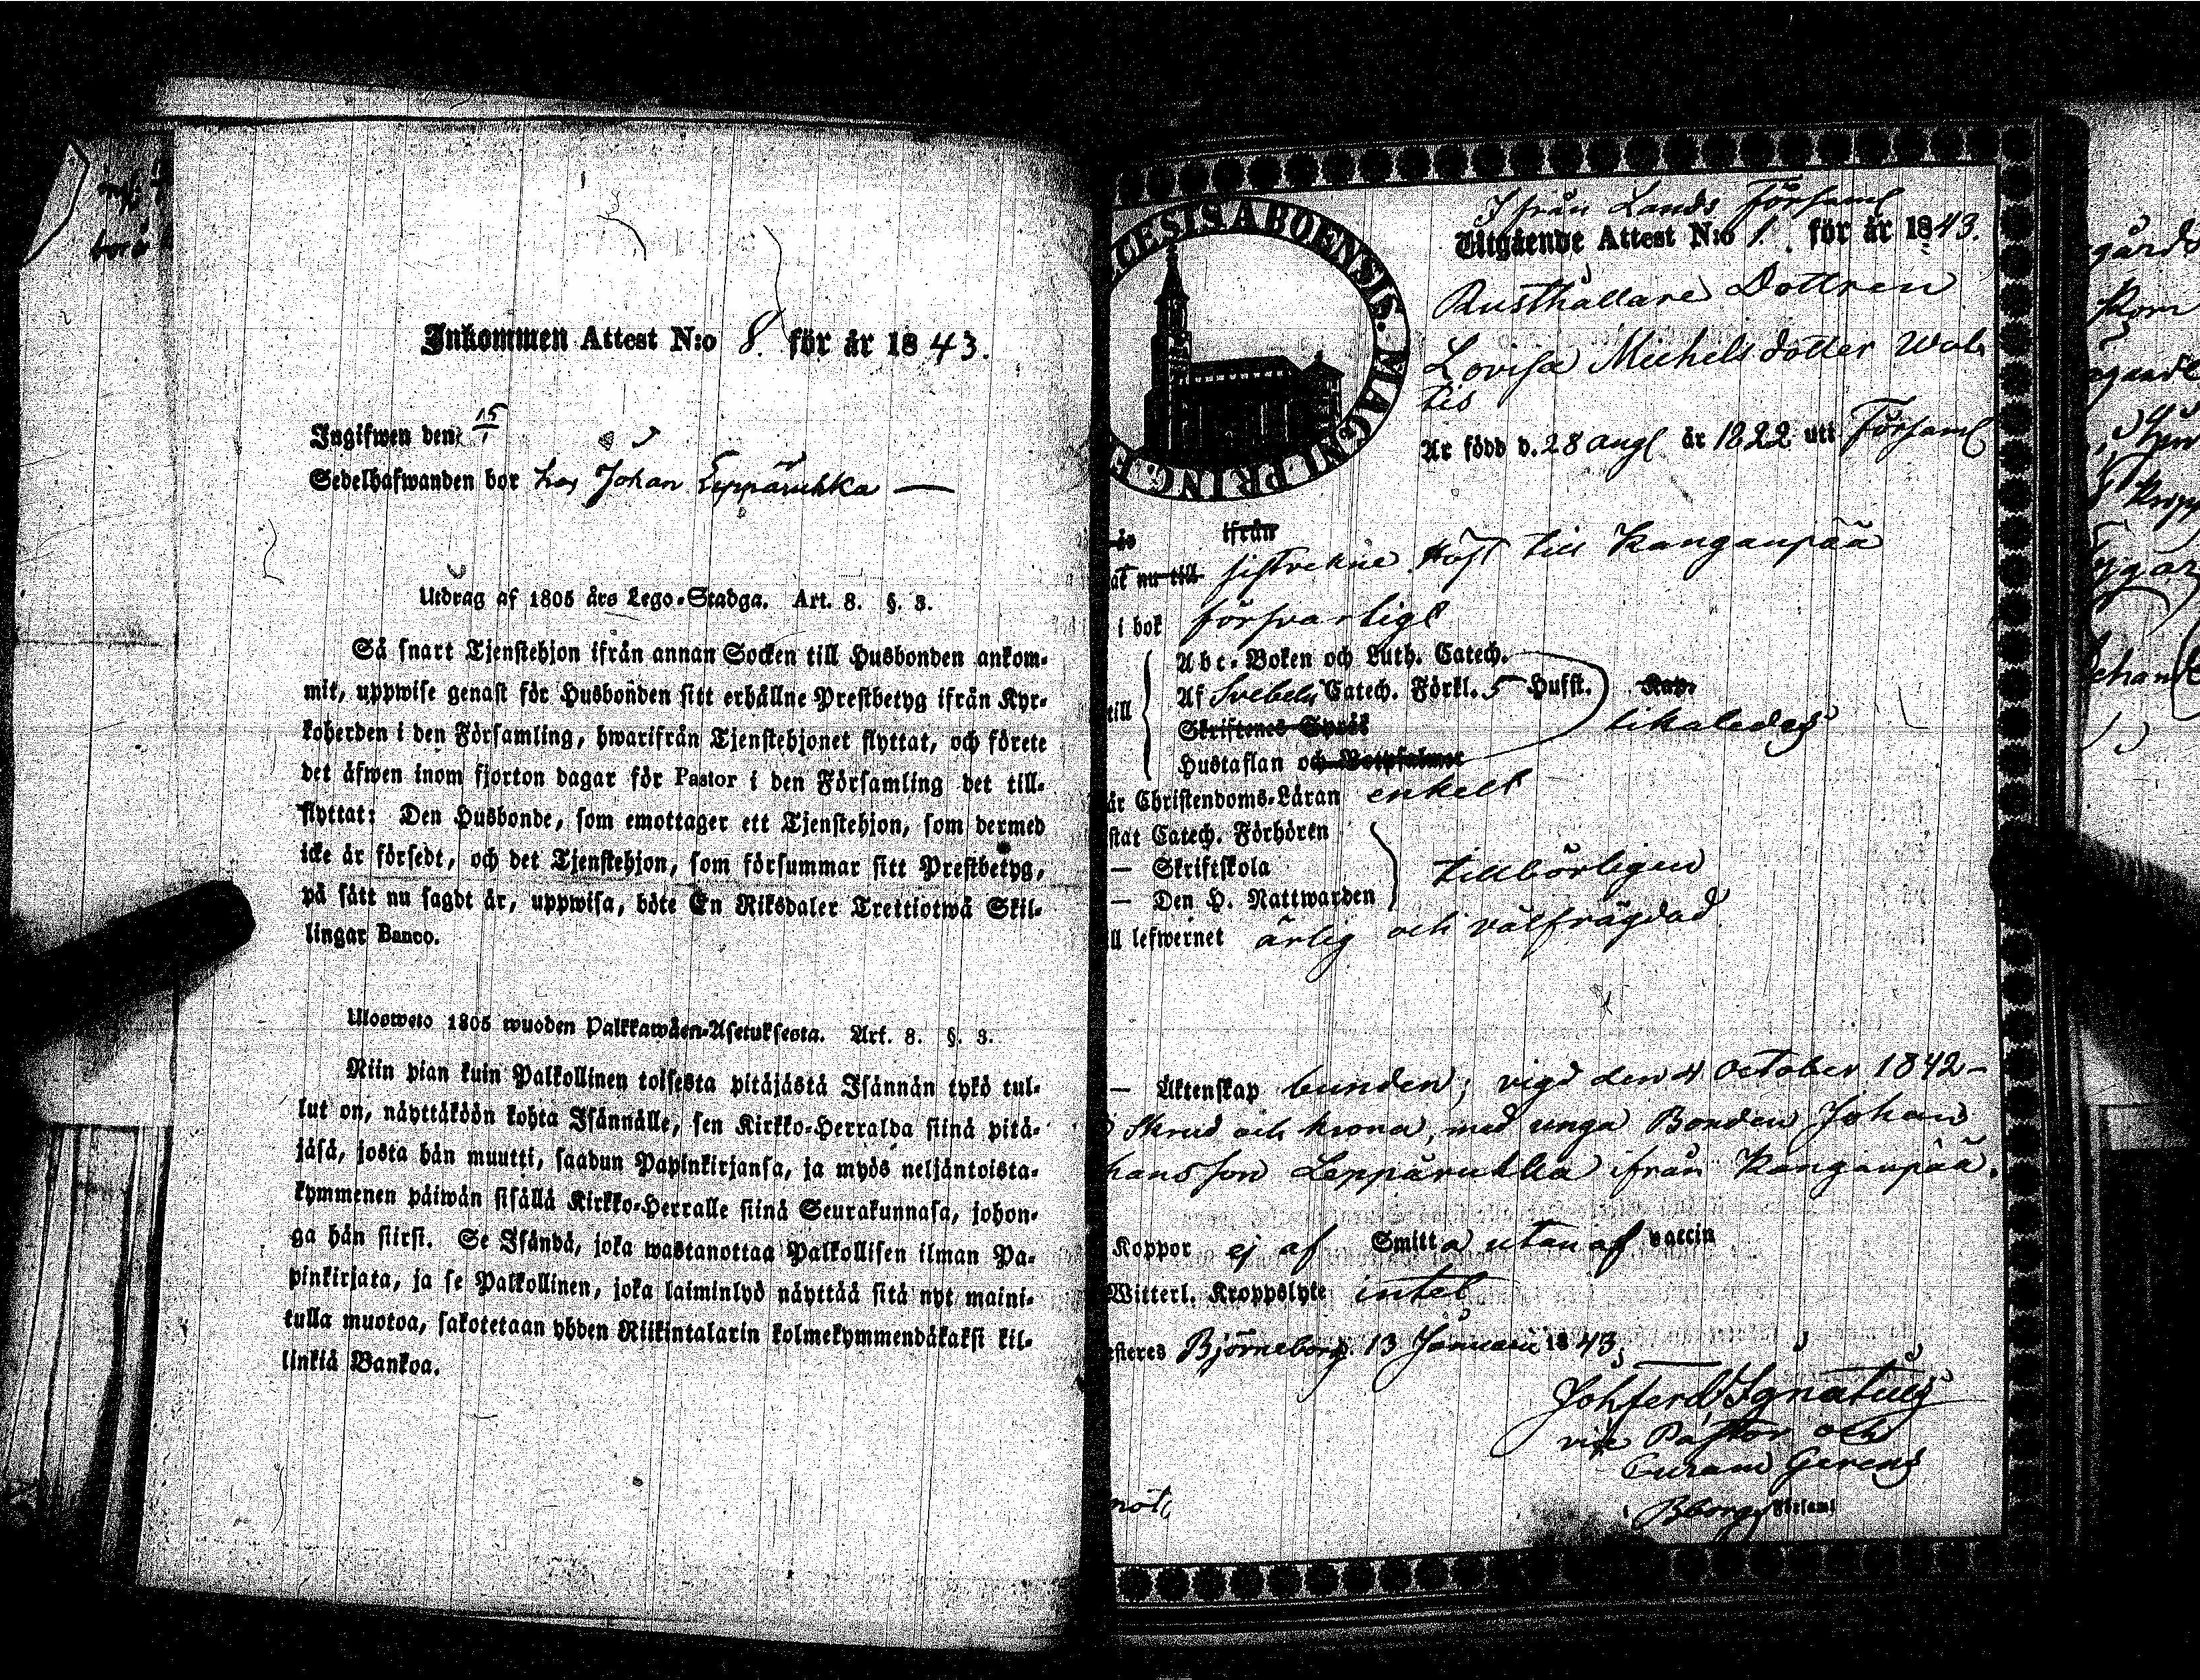 Inkommen Attest N:o 8. för år 1843.
Ingifwen den 15/1
Sedelhafwanden bor hos Johan Leppäruhka —
Utdrag af 1805 års Lego-Stadga. Art. 8. §. 3.
Så snart Tjenstehjon ifrån annan Socken till Husbonden ankom-
mit, uppwise genast för Husbonden sitt erhållne Prestbetyg ifrån Kyr-
koherden i den Församling, hwarifrån Tjenstehjonet flyttat, och förete
det äfwen inom fjorton dagar för Pastor i den Församling det till-
flyttat: Den Husbonde, som emottager ett Tjenstehjon, som dermed
icke är försedt, och det Tjenstehjon, som försummar sitt Prestbetyg,
på sätt nu sagdt är, uppwisa, böte En Riksdaler Trettiotwå Skil-
lingar Banco.
Ulosweto 1805 wuoden Palkkawäen-Asetuksesta. Art. 8. §. 3.
Niin pian kuin Palkollinen toisesta pitäjästä Isännän tykö tul-
lut on, näyttäköön kohta Isännälle, sen Kirkko-Herralda siinä pitä-
jäsä, josta hän muutti, saadun Papinkirjansa, ja myös neljäntoista-
kymmenen päiwän sisällä Kirkko-Herralle siinä Seurakunnasa, johon-
ga hän siirsi. Se Isändä, joka wastanottaa Palkollisen ilman Pa-
pinkirjata, ja se Palkollinen, joka laiminlyö näyttää sitä nyt maini-
tulla muotoa, sakotetaan yhden Riikintalarin kolmekymmendäkaksi kil-
linkiä Bankoa.
ECESIS ABOENSIS. MAGNI PRINC
Ifrån Lands Församl
Utgående Attest N:o 1. för år 1843.
Rusthållare Dottren
Lovisa Michelsdotter
Är född d. 28 Aug. år 1822 uti Församl
ifrån
at nu till sistvekne Höst till Kanganpää
i bok försvarligt
till
Abc-Boken och Luth. Catech.
Af Svebelii Catech. Förkl. 5 Hufst. Kap.
Skriftenes Språk
Hustaflan och Botpsalmer
likaledes
är Christendoms-Läran enkelt
stat Catech. Förhören
— Skriftskola
— Den H. Nattwarden
tillbörligen
ll lefwernet ärlig och välfrägdad
— Äktenskap bunden; vigd den 4 October 1842 -
Skrud och krona, med unga Bonden Johan
hansson Leppäruhka ifrån Kanganpää.
Koppor ej af Smitta utan af vaccin
Witterl. Kroppslyte intet
esteres Björneborg. 13 Januarii 1843.
Joh Ferd Ignatius
vice Pastor och
Curam Gerens
i Bborgs Församl